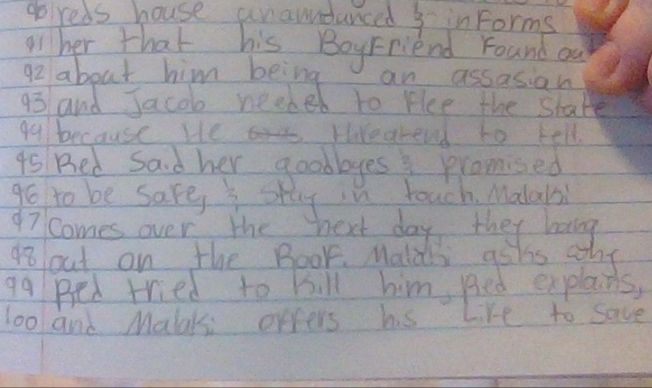 90 reds house unanounced & informs
91 her that his Boyfriend Found out
92 about him being an assasian
93 and Jacob needed to Flee the State
94 because He threatend to tell.
95 Red Said her goodbyes & promised
96 to be Safe, & Stay in touch. Malaki
97 Comes over the next day they hang
98 out on the Roof. Malaki asks why
99 Red tried to kill him, Red explains,
100 and Malaki offers his Life to Save